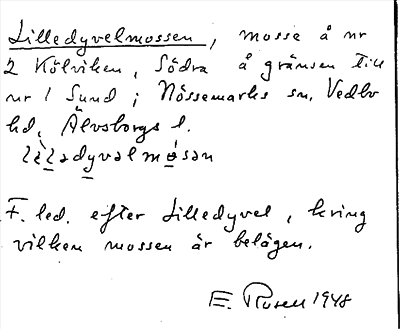 Lilledyvelmossen, mosse å nr
2 Kölviken, Södra å gränsen till
nr 1 Sund i Nössemarks sn, Vedbo
hd, Älvsborgs l.
lìladyvalmósan
F. led. efter Lilledyvel, kring
vilken mossen är belägen.
E. Rosen 1948